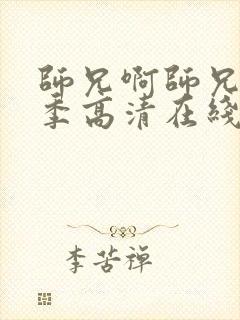 師兄啊師兄
季高清在綫
李苦禅